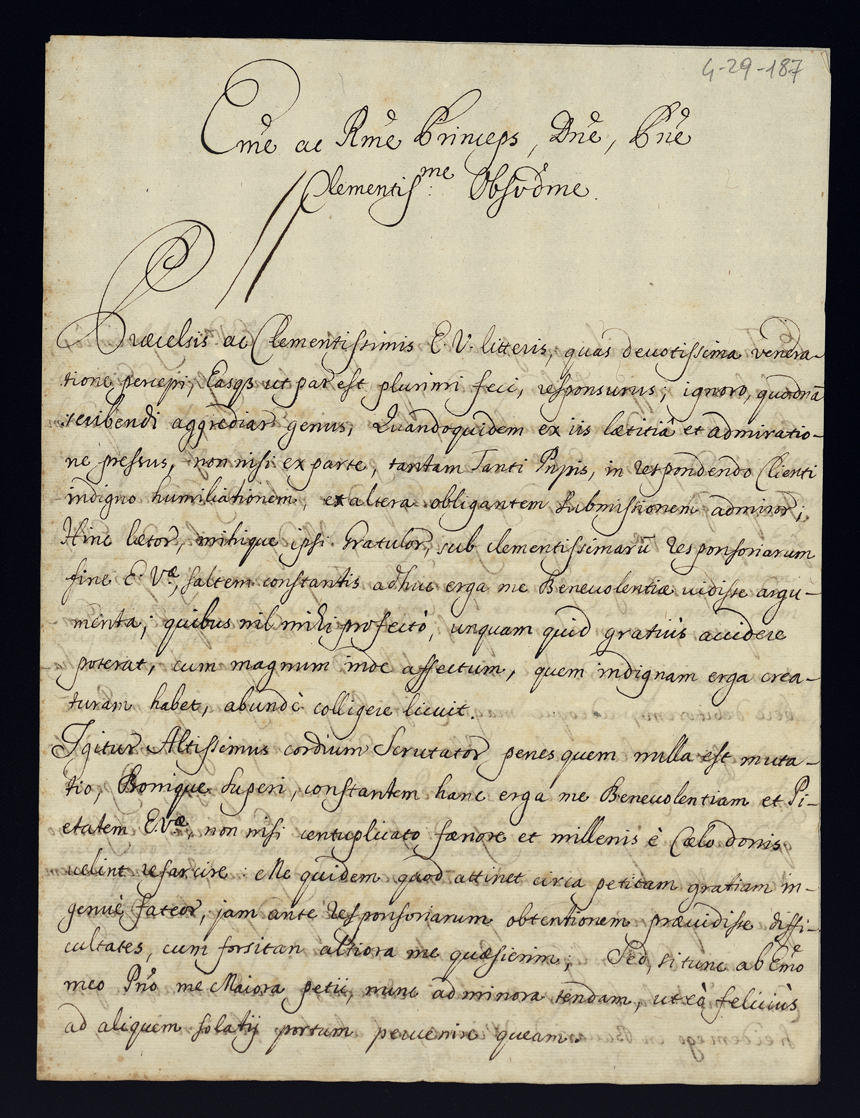 4-29-187
Emẽ ac Rmẽ Princeps, Dnẽ, Pnẽ
Clementisme: Obsvdme.
Præcelsis ac Clementissimis E. V. litteris, quas devotissima venera-
tione percepi, Easqs ut par est plurimi feci, responsurus, ignoro, quodnā
scribendi aggrediar genus; Quandoquidem ex iis lætitiâ et admiratio-
ne pressus, non nisi ex parte, tantam Tanti Pnpis, in respondendo Clienti
indigno humiliationem, ex altera obligantem submissionem admiror;
Hinc lætor, mihique ipsi Gratulor, sub clementissimarū responsoriarum
fine E. Væ, saltem constantis adhuc erga me Benevolentiæ vidisse argu-
menta; quibus nil mihi profectò, unquam quid gratiùs accidere
poterat, cum magnum inde affectum, quem indignam erga crea-
turam habet, abundè colligere licuit.
Igitur Altissimus cordium Scrutator penes quem nulla est muta-
tio, Bonique Superi, constantem hanc erga me Benevolentiam et Pi-
etatem E. Væ, non nisi centuplicato fænore et millenis è Cælo donis
velint resarcire: Me quidem quod attinet circa petitam gratiam in-
genuè fateor, jam ante responsoriarum obtentionem prævidisse diffi-
cultates, cum forsitan altiora me quæsierim; Sed, si tunc ab Emõ
meo Pnõ me Maiora petij, nunc ad minora tendam, ut eò feliciùs
ad aliquem solatij portum pervenire queam.